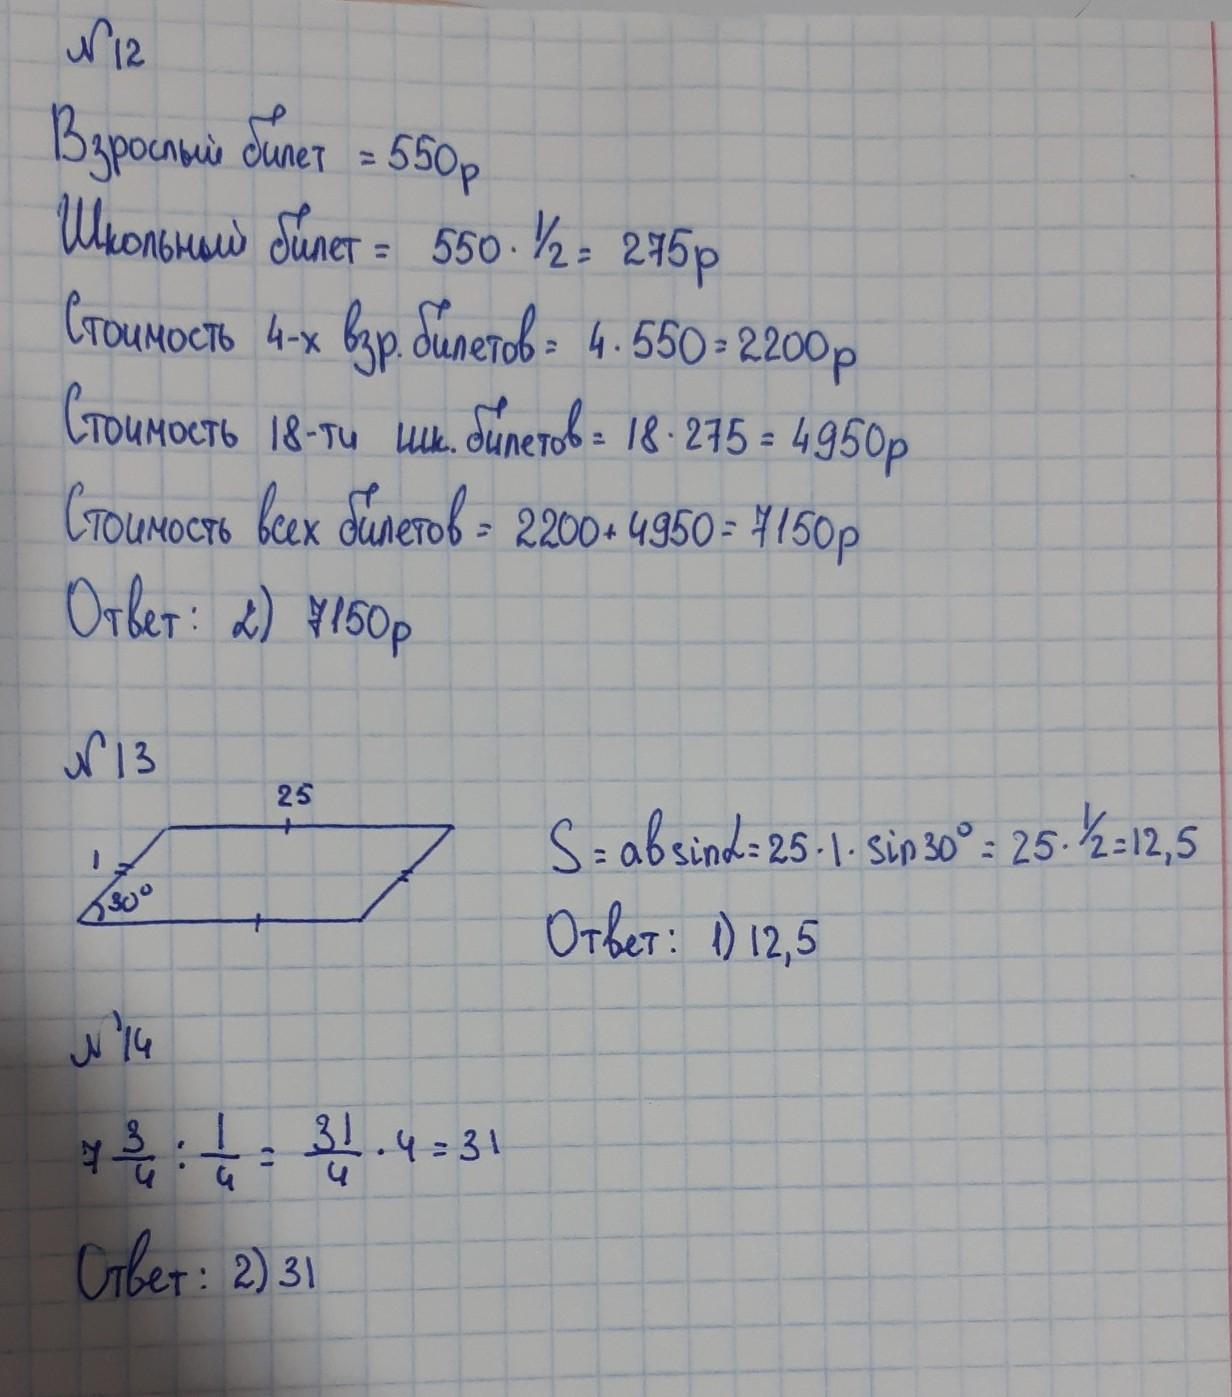 №12
Взрослый билет = 550р
Школьный билет = 550 · 1/2 = 275р
Стоимость 4-х взр. билетов = 4 · 550 = 2200р
Стоимость 18-ти шк. билетов = 18 · 275 = 4950р
Стоимость всех билетов = 2200 + 4950 = 7150р
Ответ: 2) 7150р
№13
25
1
30°
S = ab sinα = 25 · 1 · sin30° = 25 · 1/2 = 12,5
Ответ: 1) 12,5
№14
7 3/4 : 1/4 = 31/4 · 4 = 31
Ответ: 2) 31